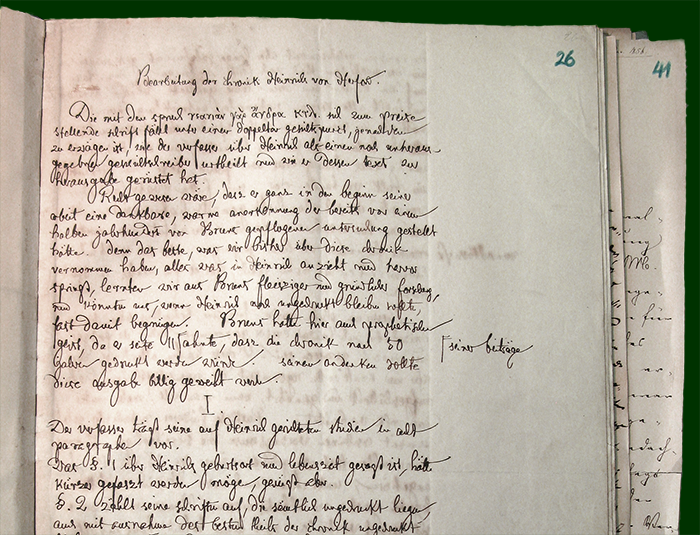 26
41
Bearbeitung der chronik Heinrichs von Herford.
Die mit dem spruch νεανίαν γὰρ ἄνδρα κτλ. sich zum preise
stellende schrift fällt unter einen doppelten gesichtspunct, jenachdem
zu erwägen ist, wie der verfasser über Heinrich als einen noch unheraus-
gegebnen geschichtschreiber urtheilt und wie er dessen text zur
herausgabe gerüstet hat.
Recht gewesen wäre, dasz er ganz in den beginn seiner
arbeit eine dankbare, warme anerkennung der bereits vor einem
halben jahrhundert von Bruns gepflogenen untersuchung gestellt
hätte. denn das beste, was wir bisher über diese chronik
vernommen haben, alles was in Heinrich anzieht und hervor
springt, lernten wir aus Bruns fleisziger und gründlicher forschung,
und könnten uns, wenn Heinrich noch ungedruckt bleiben sollte,
fast damit begnügen. Bruns hatte hier auch prophetischen
geist, da er seite 11 ahnte, dasz die chronik nach 50
seiner beiträge
jahren gedruckt werden würde. seinem andenken sollte
diese ausgabe billig geweiht werden.
I.
Der verfasser trägt seine auf Heinrich gerichteten studien in acht
paragraphen vor.
Was §. 1 über Heinrichs geburtsort und lebenszeit gesagt ist, hätte
kürzer gefaszt werden mögen, genügt aber.
§. 2 zählt seine schriften auf, die sämtlich ungedruckt liegen,
auch mit ausnahme des besten theils der chronik ungedruckt